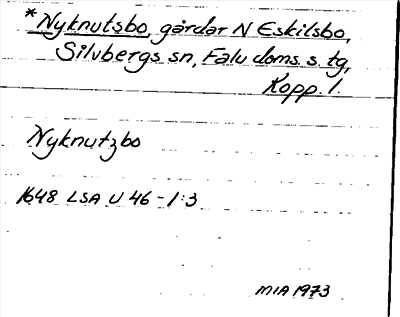 *Nyknutsbo, gårdar N Eskilsbo,
Silvbergs sn, Falu doms. s. tg,
Kopp. l.
Nyknutzbo
1648 LSA U 46 - 1:3
MIA 1973